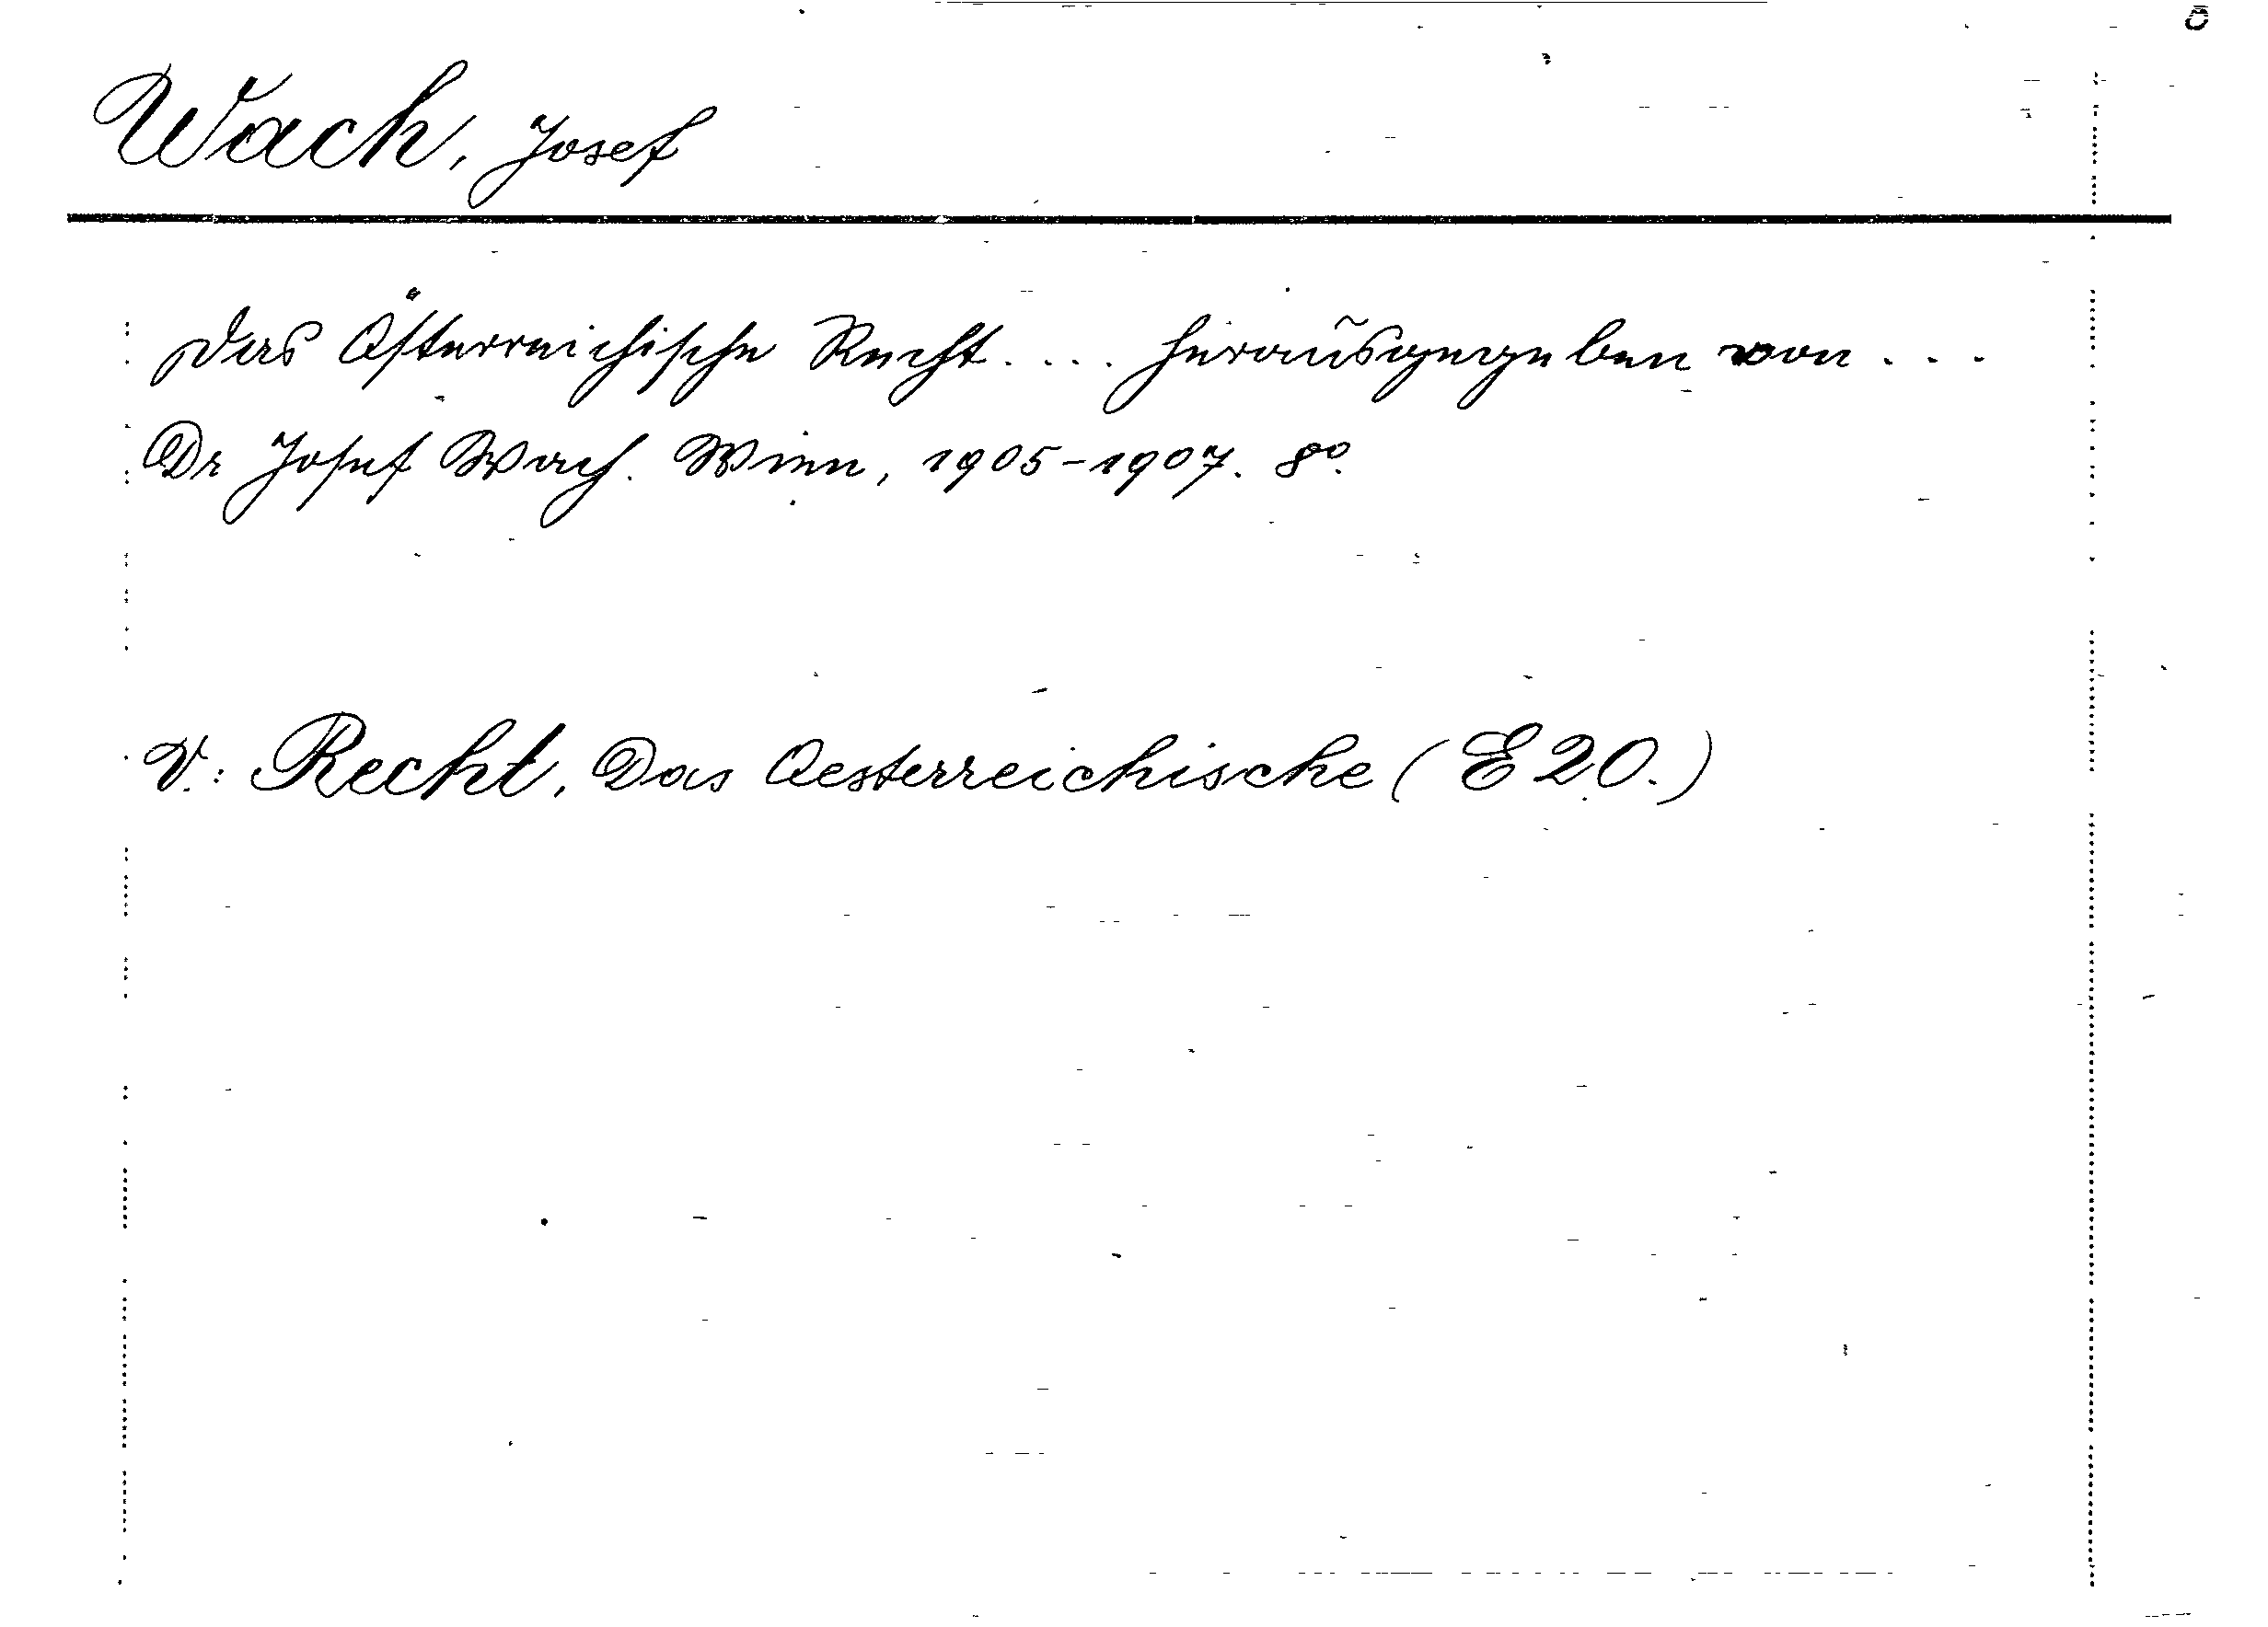 Wach, Josef
Das Österreichische Recht.... herausgegeben von...
Dr Josef Wach. Wien, 1905-1907. 8º.
V.: Recht, Das Oesterreichische (E 20.)